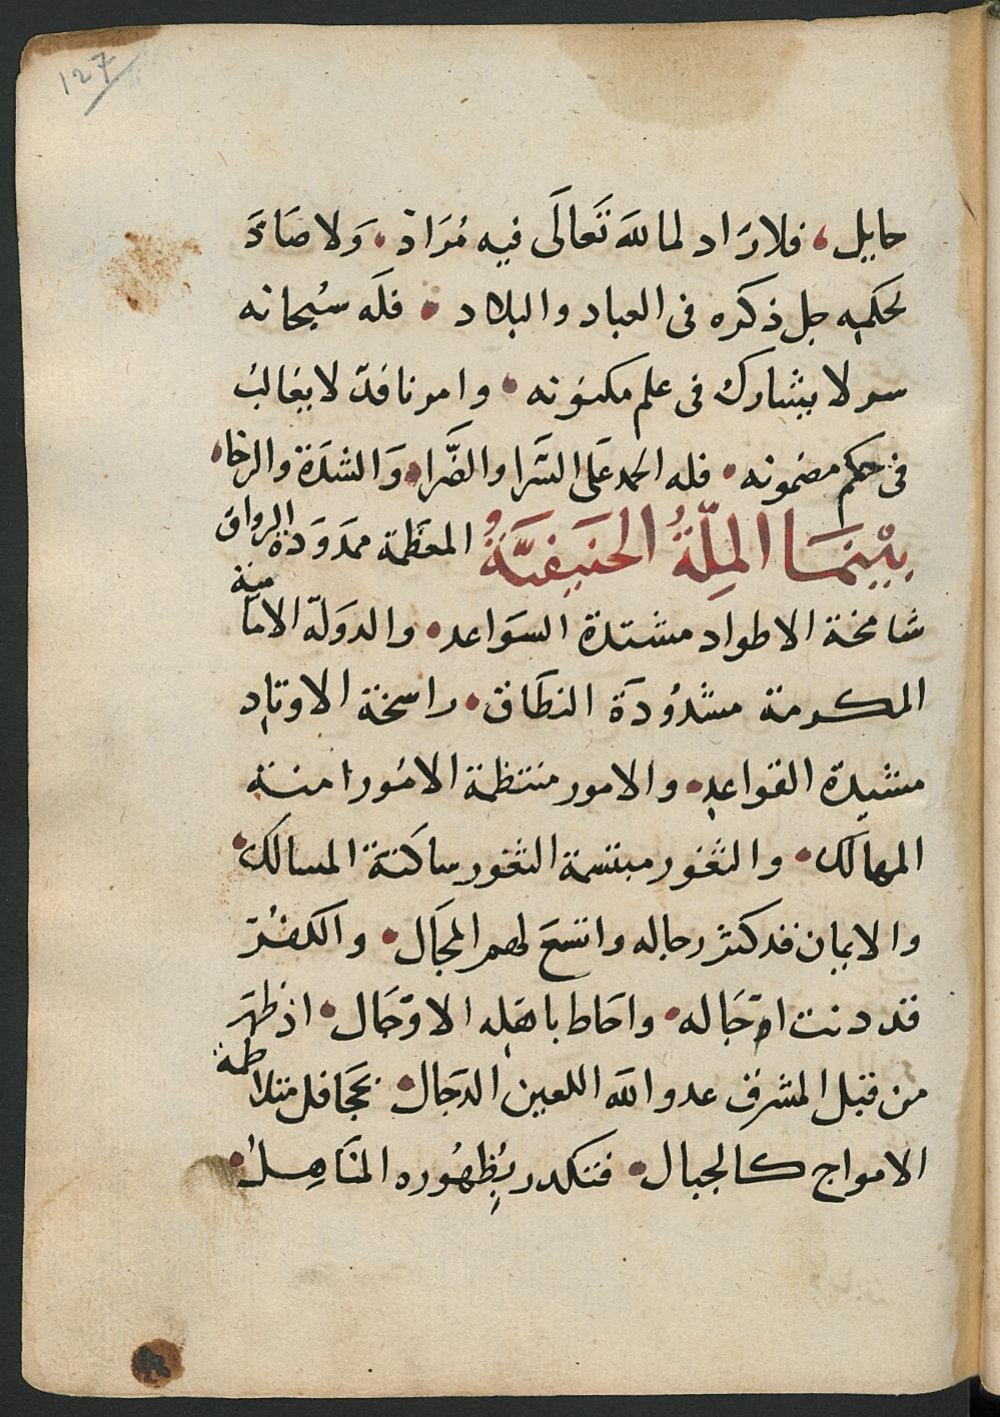 127
حايل • فلا رَاد لما للهَ تَعَالَى فيه مُرَاد • وَلا صَادَّ
لحكمه جل ذكره فى العباد والبلاد • فلَه سُبحانه
سر لا يشارك فى علم مكنونه • وامر نافذ لا يغالبُ
فى حكم مضمونه • فله الحمد عَلَى السَّرا والضَّرا • وَالشدَة والرخا •
بيْنمَا الملّةُ الحَنيفيَّةُ المعَظمة ممدَودَة الرواق
شامخة الاطواد مشتدة السَواعد • والدوَلة الامامية
المكرمة مشدُودَة النطَاق • راسخة الاوتاد
مشيدة القواعد • والامور منتظمة الامُور امنة
المهالك • والثغور مبتسمة الثغور ساكنَة المسالك •
والايمان قد كثر رجاله واتسعَ لهم المجَال • والكفر
قد دنت اوْجَاله • واحَاط باهَله الاوْحَال • اذ ظهَر
من قبل المشرق عدو الله اللعين الدجَال • بجَحافل متلاطمة
الامواج كالجبال • فتكدر بِظهُوره المنَاهِل •